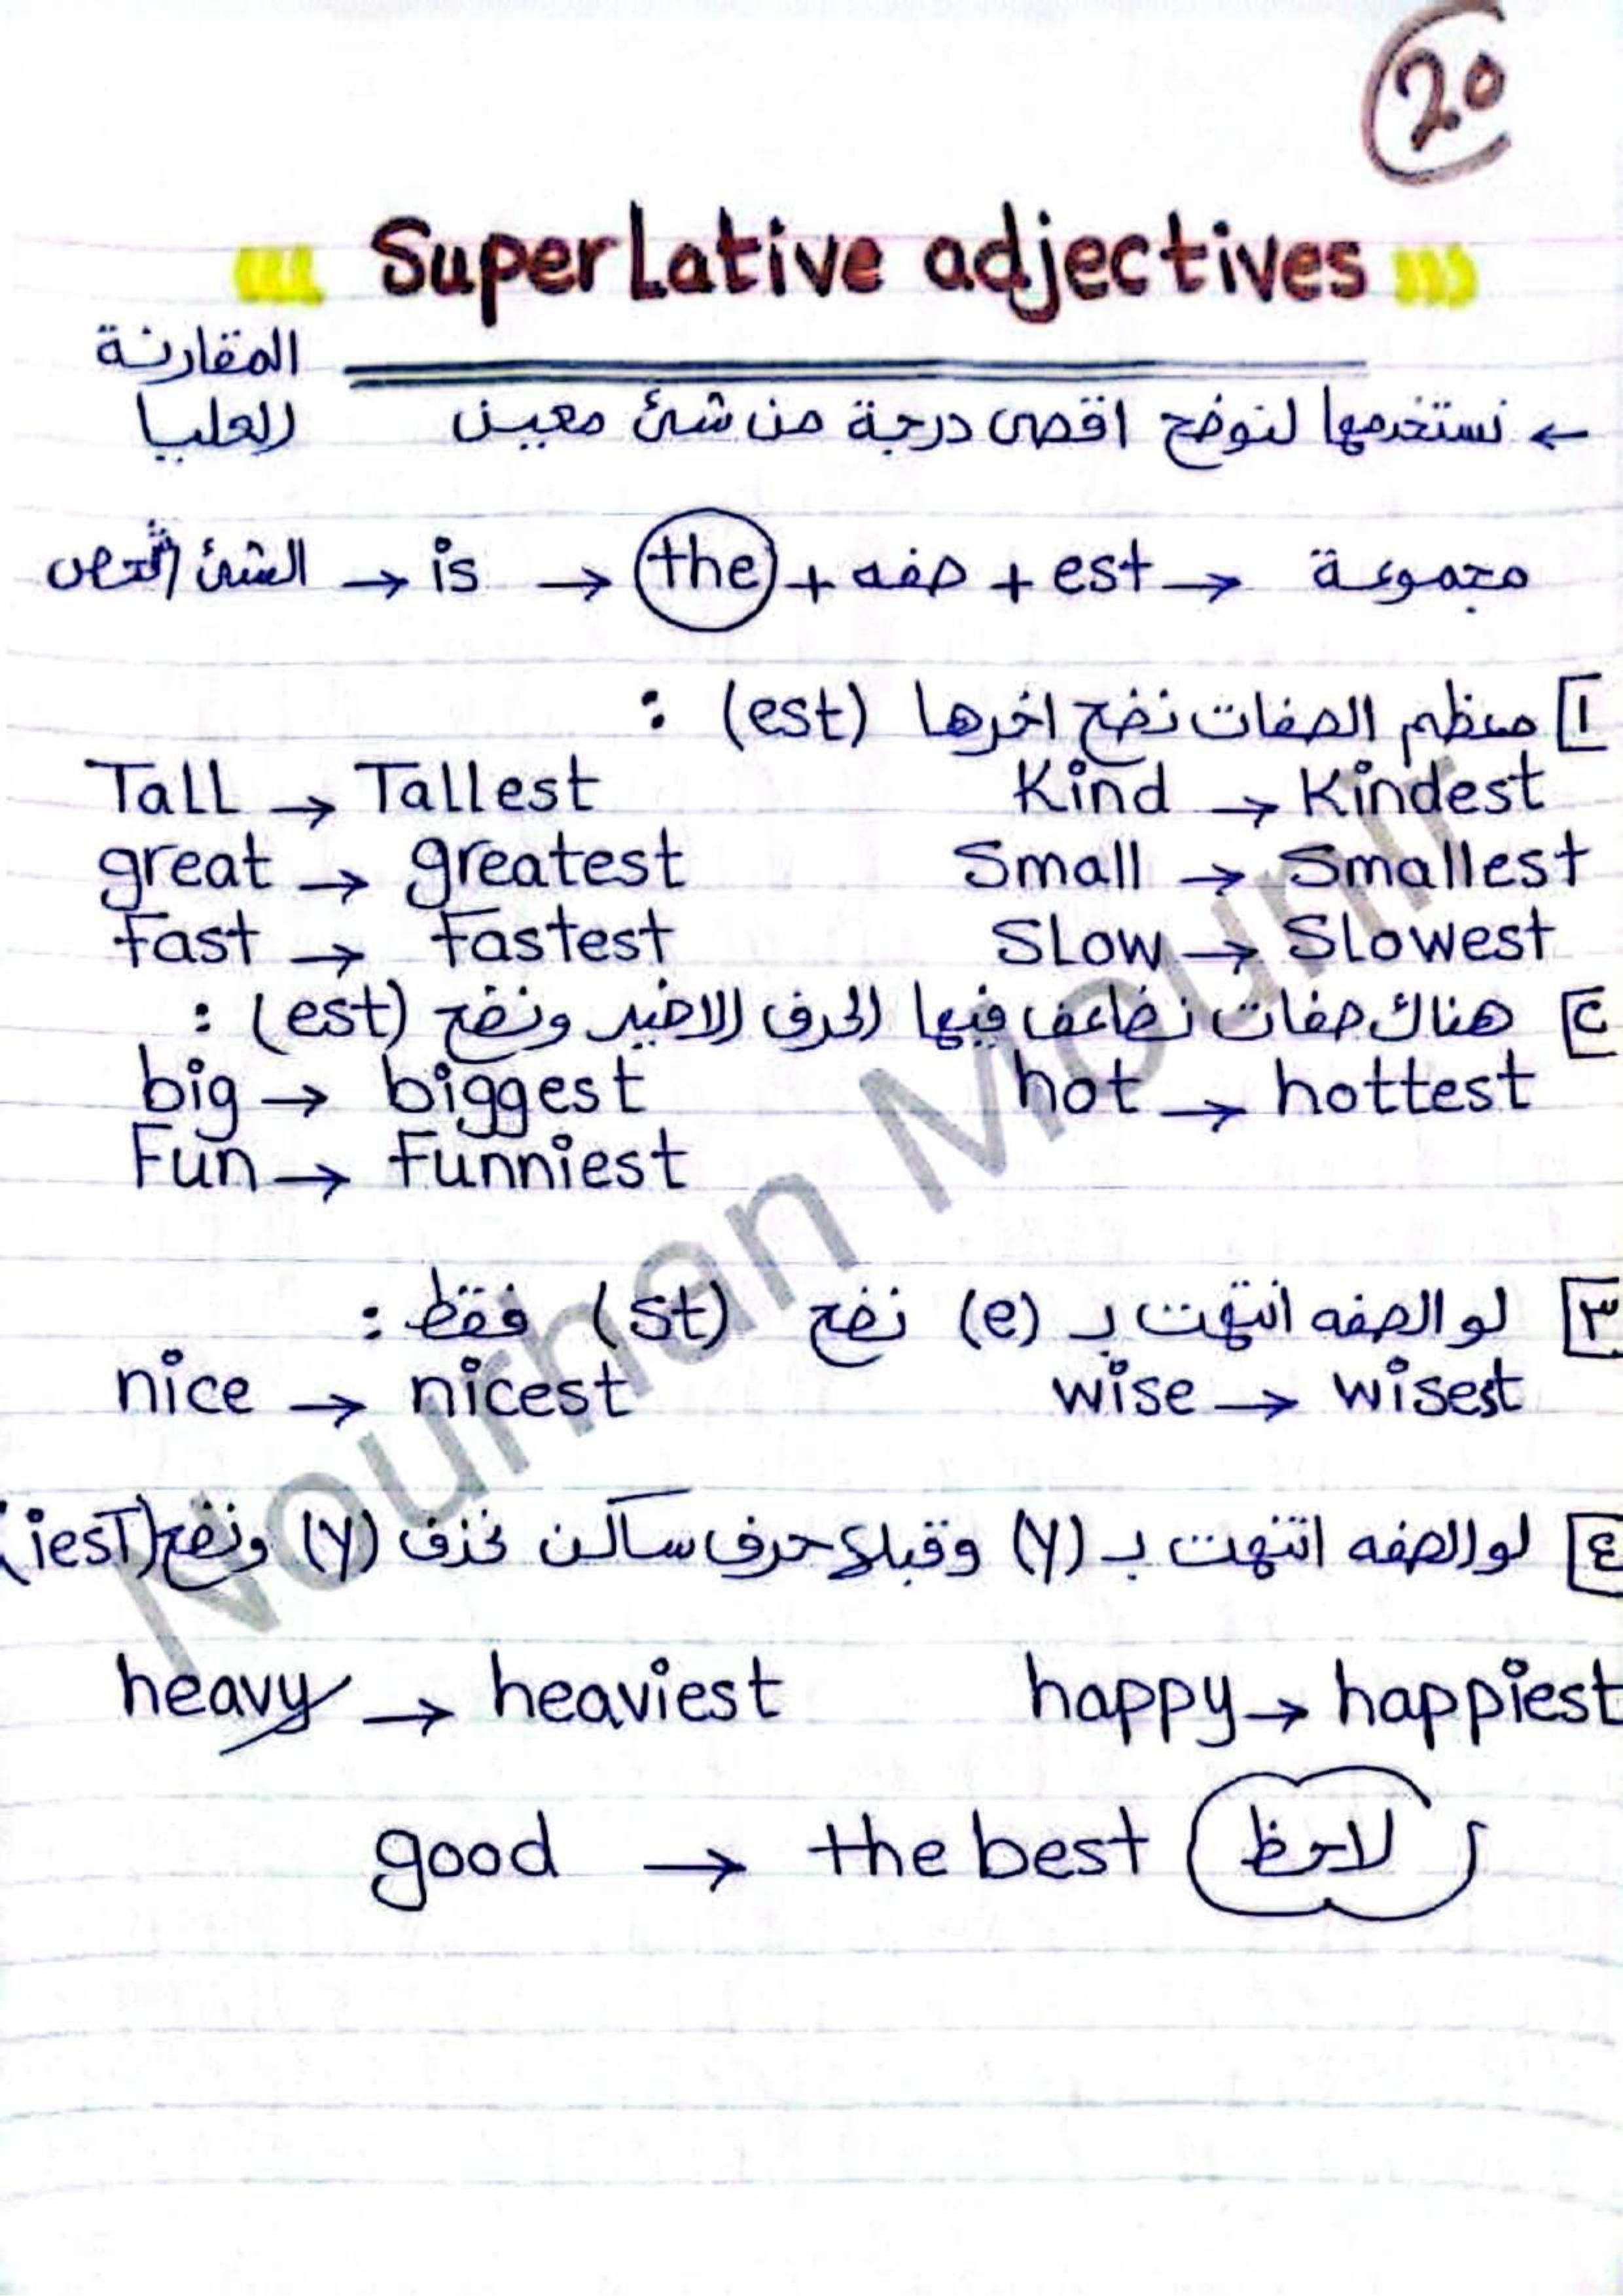 20
SuperLative adjectives
المقارنة
العليا
← نستخدمها لنوضح اقصى درجة من شئ معين
الشئ / الشخص → is → the + صفه + est → مجموعة
١ معظم الصفات نضع اخرها (est) :
Tall → Tallest Kind → Kindest
great → greatest Small → Smallest
Fast → Fastest SLow → SLowest
٢ هناك صفات نضاعف فيها الحرف الاخير ونضع (est) :
big → biggest hot → hottest
Fun → Funniest
٣ لو الصفه انتهت بـ (e) نضع (st) فقط :
nice → nicest wise → wisest
٤ لو الصفه انتهت بـ (y) وقبله حرف ساكن نحذف (y) ونضع (iest) :
heavy → heaviest happy → happiest
good → the best لاحظ
Nourhan Mounir